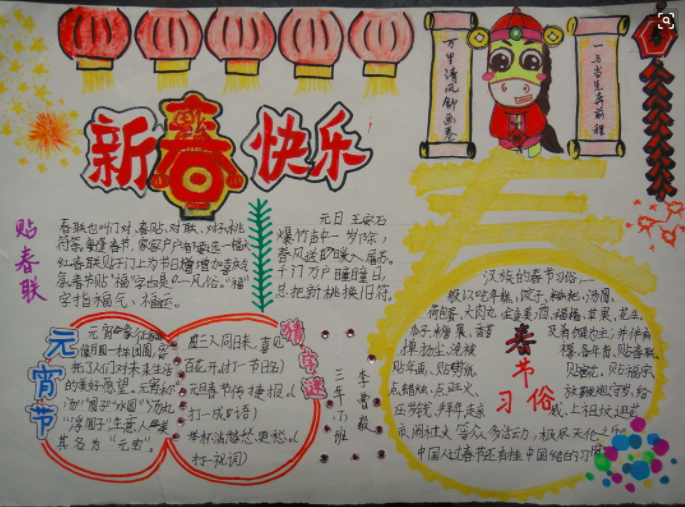 新春快乐
万里清风铺画卷
一马当先奔前程
贴春联
春联也叫门对、春贴、对联、对子,桃
符等,每逢春节,家家户户都要选一幅大
红春联贴于门上为节日增加喜庆气
氛。春节贴"福"字也是一风俗。"福"
字指福气、福运。
元日 王安石
爆竹声中一岁除,
春风送暖入屠苏。
千门万户曈曈日,
总把新桃换旧符。
元宵节
元宵象征
月一样团圆,寄
托了人们对未来生活
的美好愿望。元宵称"
汤""圆子""水圆"
"浮圆子"生意人
其名为"元宝"
猜字谜
三人同日来,喜见
百花开,(打一节日名)
元旦春节传捷报。(
打一成口语)
举杯浇愁愁更愁。(
打一祝词)
三年(7)班
李曹毅
汉族的春节习俗,一
般以吃年糕、饺子、糍粑、汤圆、
荷包蛋、大肉丸、全鱼、美酒、福橘、苹果、花生、
瓜子、糖果、香茗
及肴馔为主;并伴有
掸扬尘、洗被
贴年画、贴剪纸
贴春联、
贴福字、
点蜡烛、点旺火、
放鞭炮、守岁、给
压岁钱、拜年、走亲
戚、上祖坟、逛花
市、闹社火等众多活动,极尽天伦之乐。
中国人过春节还有挂中国结的习惯
春节习俗